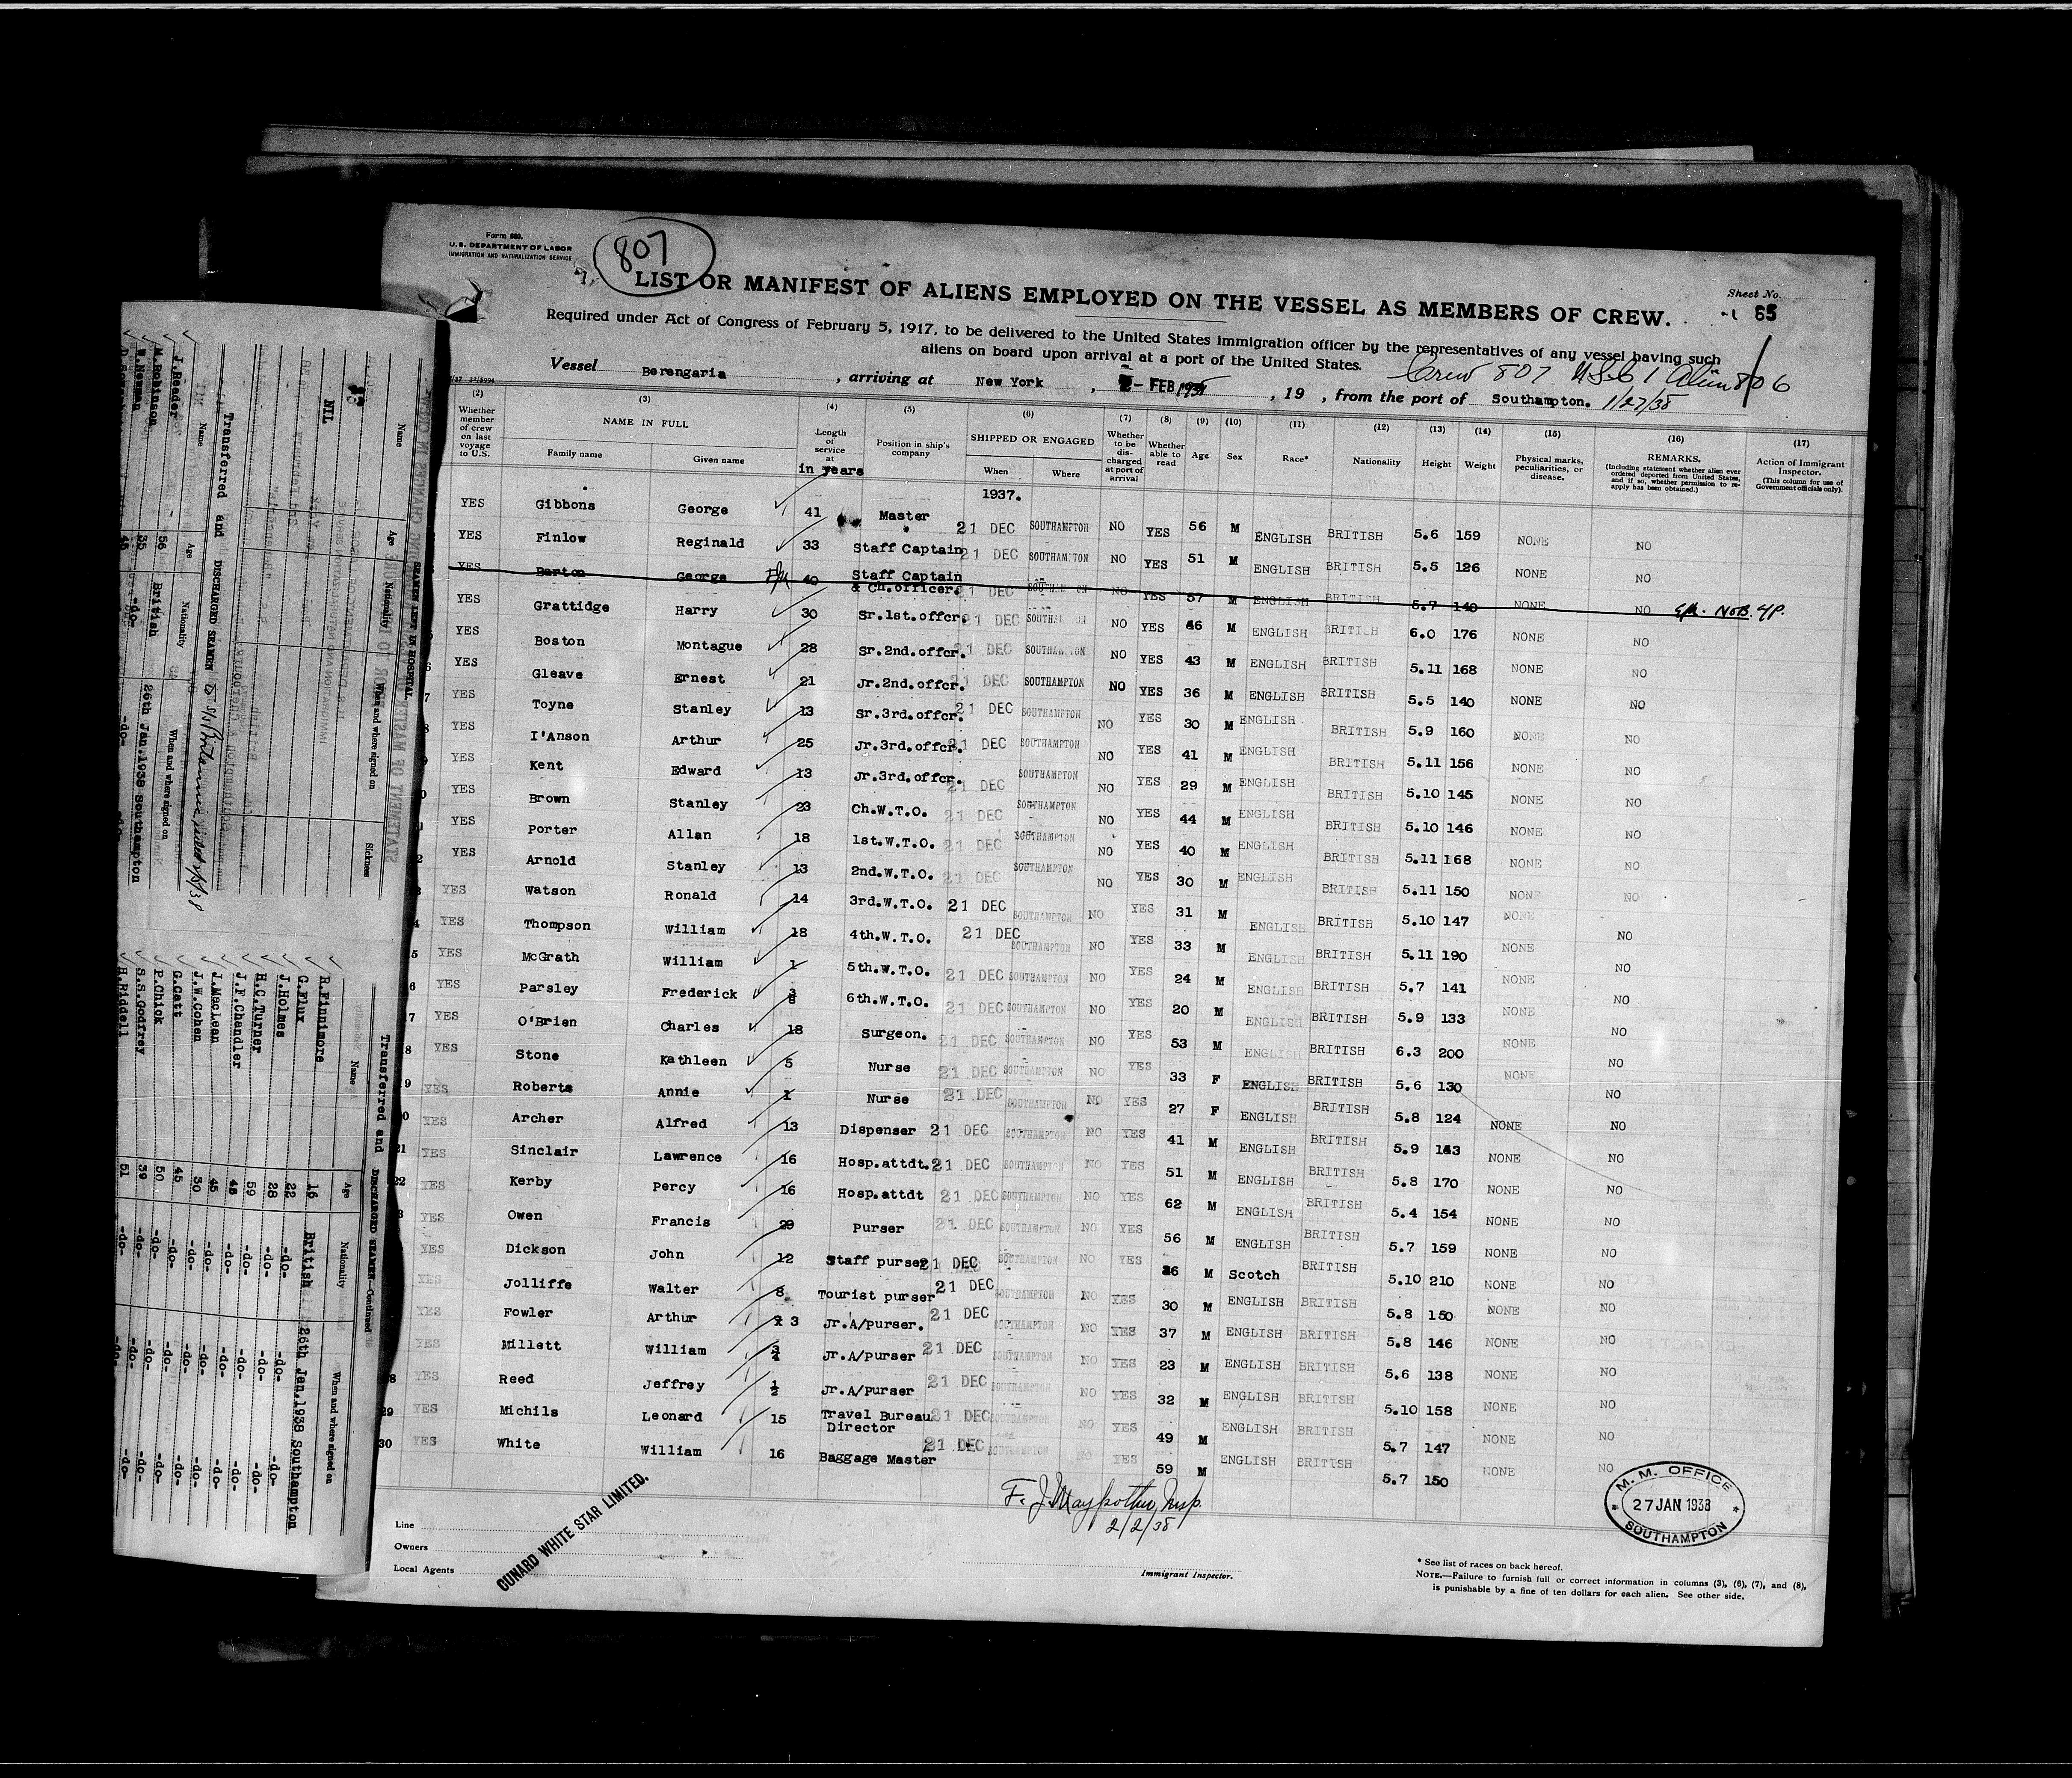 Form 680.
U. S. DEPARTMENT OF LABOR
IMMIGRATION AND NATURALIZATION SERVICE
807
LIST OR MANIFEST OF ALIENS EMPLOYED ON THE VESSEL AS MEMBERS OF CREW.
Sheet No.
85
Required under Act of Congress of February 5, 1917, to be delivered to the United States immigration officer by the representatives of any vessel having such
aliens on board upon arrival at a port of the United States.
Crew 807 1 Alien 806
Vessel Berengaria , arriving at New York , 2 - FEB 1938 , 19 , from the port of Southampton. 1/27/38
(2) (3) (4) (5) (6) (7) (8) (9) (10) (11) (12) (13) (14) (15) (16) (17)
Whether member of crew on last voyage to U.S. NAME IN FULL Family name Given name Length of service at in years Position in ship's company SHIPPED OR ENGAGED When Where Whether to be discharged at port of arrival Whether able to read Age Sex Race* Nationality Height Weight Physical marks, peculiarities, or disease. REMARKS. (Including statement whether alien ever ordered deported from United States, and if so, whether permission to reapply has been obtained.) Action of Immigrant Inspector. (This column for use of Government officials only).
1937.
YES Gibbons George 41 Master 21 DEC SOUTHAMPTON NO YES 56 M ENGLISH BRITISH 5.6 159 NONE NO
YES Finlow Reginald 33 Staff Captain 21 DEC SOUTHAMPTON NO YES 51 M ENGLISH BRITISH 5.5 126 NONE NO
YES Barton George 40 Staff Captain & Ch.officer. 21 DEC SOUTHAMPTON NO YES 57 M ENGLISH BRITISH 5.7 140 NONE NO
YES Grattidge Harry 30 Sr.1st.offcr. 21 DEC SOUTHAMPTON NO YES 46 M ENGLISH BRITISH 6.0 176 NONE NO
YES Boston Montague 28 Sr.2nd.offcr. 21 DEC SOUTHAMPTON NO YES 43 M ENGLISH BRITISH 5.11 168 NONE NO
6 YES Gleave Ernest 21 Jr.2nd.offcr. 21 DEC SOUTHAMPTON NO YES 36 M ENGLISH BRITISH 5.5 140 NONE NO
7 YES Toyne Stanley 13 Sr.3rd.offcr. 21 DEC SOUTHAMPTON NO YES 30 M ENGLISH BRITISH 5.9 160 NONE NO
8 YES I'Anson Arthur 25 Jr.3rd.offcr. 21 DEC SOUTHAMPTON NO YES 41 M ENGLISH BRITISH 5.11 156 NONE NO
9 YES Kent Edward 13 Jr.3rd.offcr. 21 DEC SOUTHAMPTON NO YES 29 M ENGLISH BRITISH 5.10 145 NONE NO
0 YES Brown Stanley 23 Ch.W.T.O. 21 DEC SOUTHAMPTON NO YES 44 M ENGLISH BRITISH 5.10 146 NONE NO
1 YES Porter Allan 18 1st.W.T.O. 21 DEC SOUTHAMPTON NO YES 40 M ENGLISH BRITISH 5.11 168 NONE NO
2 YES Arnold Stanley 13 2nd.W.T.O. 21 DEC SOUTHAMPTON NO YES 30 M ENGLISH BRITISH 5.11 150 NONE NO
3 YES Watson Ronald 14 3rd.W.T.O. 21 DEC SOUTHAMPTON NO YES 31 M ENGLISH BRITISH 5.10 147 NONE NO
4 YES Thompson William 18 4th.W.T.O. 21 DEC SOUTHAMPTON NO YES 33 M ENGLISH BRITISH 5.11 190 NONE NO
5 YES McGrath William 1 5th.W.T.O. 21 DEC SOUTHAMPTON NO YES 24 M ENGLISH BRITISH 5.7 141 NONE NO
6 YES Parsley Frederick 3/8 6th.W.T.O. 21 DEC SOUTHAMPTON NO YES 20 M ENGLISH BRITISH 5.9 133 NONE NO
7 YES O'Brien Charles 18 Surgeon. 21 DEC SOUTHAMPTON NO YES 53 M ENGLISH BRITISH 6.3 200 NONE NO
8 YES Stone Kathleen 5 Nurse 21 DEC SOUTHAMPTON NO YES 33 F ENGLISH BRITISH 5.6 130 NONE NO
9 YES Roberts Annie 1 Nurse 21 DEC SOUTHAMPTON NO YES 27 F ENGLISH BRITISH 5.8 124 NONE NO
0 YES Archer Alfred 13 Dispenser 21 DEC SOUTHAMPTON NO YES 41 M ENGLISH BRITISH 5.9 143 NONE NO
21 YES Sinclair Lawrence 16 Hosp.attdt. 21 DEC SOUTHAMPTON NO YES 51 M ENGLISH BRITISH 5.8 170 NONE NO
22 YES Kerby Percy 16 Hosp.attdt 21 DEC SOUTHAMPTON NO YES 62 M ENGLISH BRITISH 5.4 154 NONE NO
3 YES Owen Francis 29 Purser 21 DEC SOUTHAMPTON NO YES 56 M ENGLISH BRITISH 5.7 159 NONE NO
YES Dickson John 12 Staff purser 21 DEC SOUTHAMPTON NO YES 36 M Scotch BRITISH 5.10 210 NONE NO
YES Jolliffe Walter 8 Tourist purser 21 DEC SOUTHAMPTON NO YES 30 M ENGLISH BRITISH 5.8 150 NONE NO
YES Fowler Arthur 3 Jr.A/purser. 21 DEC SOUTHAMPTON NO YES 37 M ENGLISH BRITISH 5.8 146 NONE NO
YES Millett William 3/4 Jr.A/purser 21 DEC SOUTHAMPTON NO YES 23 M ENGLISH BRITISH 5.6 138 NONE NO
8 YES Reed Jeffrey 1/2 Jr.A/purser 21 DEC SOUTHAMPTON NO YES 32 M ENGLISH BRITISH 5.10 158 NONE NO
29 YES Michils Leonard 15 Travel Bureau Director 21 DEC SOUTHAMPTON NO YES 49 M ENGLISH BRITISH 5.7 147 NONE NO
30 YES White William 16 Baggage Master 21 DEC SOUTHAMPTON NO YES 59 M ENGLISH BRITISH 5.7 150 NONE NO
2/2/38
M. M. OFFICE
27 JAN 1938
SOUTHAMPTON
Line
Owners
Local Agents
CUNARD WHITE STAR LIMITED.
Immigrant Inspector.
* See list of races on back hereof.
NOTE.—Failure to furnish full or correct information in columns (3), (6), (7), and (8),
is punishable by a fine of ten dollars for each alien. See other side.
SEAMEN LEFT IN HOSPITAL
Name Age Nationality When and where signed on Sickness
NIL
Transferred and DISCHARGED SEAMEN
Name Age Nationality When and where signed on
J.Reeder 56 British 26th Jan.1938 Southampton
M.Robinson 35 -do- -do-
W.Newman 45
Transferred and DISCHARGED SEAMEN—Continued
Name Age Nationality When and where signed on
R.Finnimore 16 British 26th Jan.1938 Southampton
G.Flux 22 -do- -do- -do-
J.Holmes 28 -do- -do- -do-
H.C.Turner 59 -do- -do- -do-
J.F.Chandler 48 -do- -do- -do-
I.MacLean 45 -do- -do- -do-
J.W.Cohen 30 -do- -do- -do-
G.Catt 45 -do- -do- -do-
P.Chick 50 -do- -do- -do-
S.S.Godfrey 39 -do- -do- -do-
H.Riddell 51 -do- -do- -do-